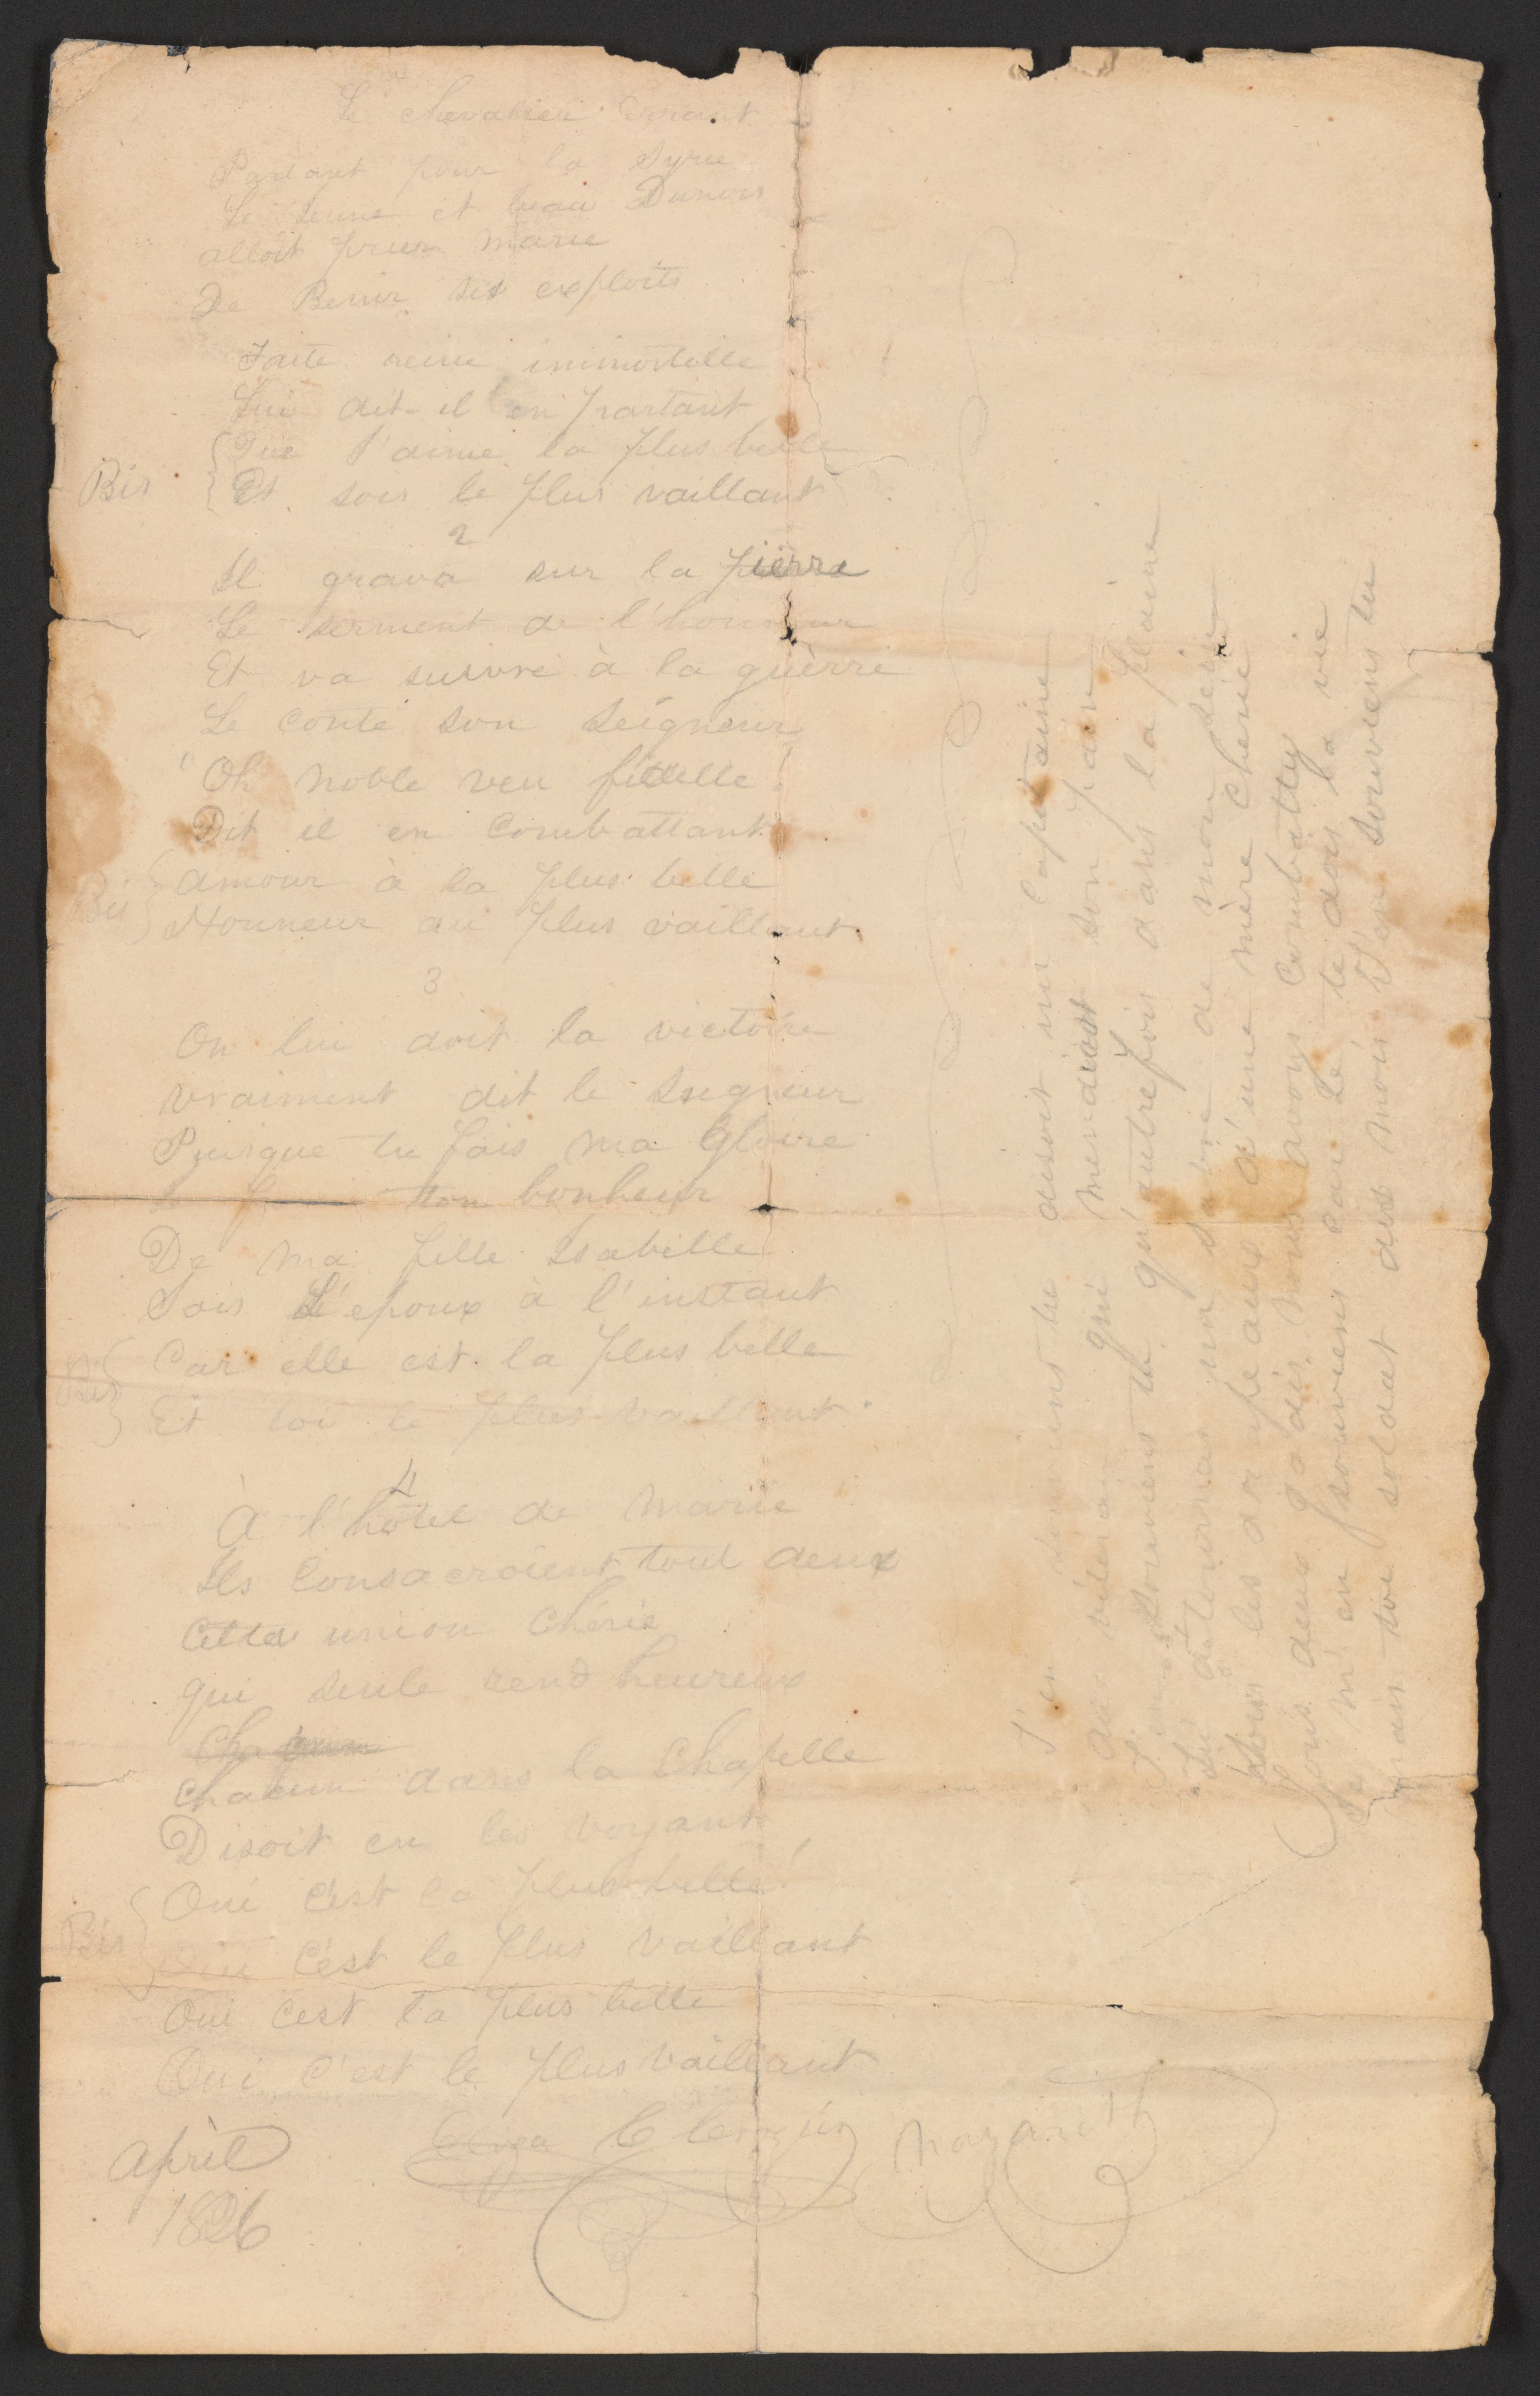 Le chevalier errant
Partant pour la Syrie
Le jeune et beau Dunois
alloit prier marie
De Benir ses exploits
Faite reine immortelle
Lui dit-il en partant
Que J'aime la plus belle
Bis Et sois le plus vaillant
2
Il grava sur la pierre
Le serment de l'honneur
Et va suivre à la guèrre
Le conte son Seigneur
Oh noble veu fidelle!
Dit il en Combattant
amour à la plus belle
Bis Honneur au plus vaillant
3
On lui doit la victoire
vraiment dit le Seigneur
Puisque tu fais ma Gloire
ton bonheur
De ma fille Isabelle
Sois L'epoux à l'instant
Bis Car elle est la plus belle
Et toi le plus vaillant
4
À l'hôtel de Marie
Ils Consacroient tout deux
Cette union Chérie
qui seule rend heureux
Cha
chacun dans la Chapelle
Disoit en les voyant
Oui c'est la plus belle!
Bis Oui C'est le plus vaillant
Oui C'est la plus belle
Oui C'est le plus vaillant
april
1896
T'en souviens tu disoit un Capitaine
au vétéran qui mendiait son pain
T'en souviens tu qu'autrefois dans la plaine
Tu détournas un sabre de mon sein
Sous les drapeaux d'une mère Cherie
Tous deux Jadis nous avons Combattu
Je m'en souviens car Je te dois la vie
mais toi soldat dis moi T'en souviens tu